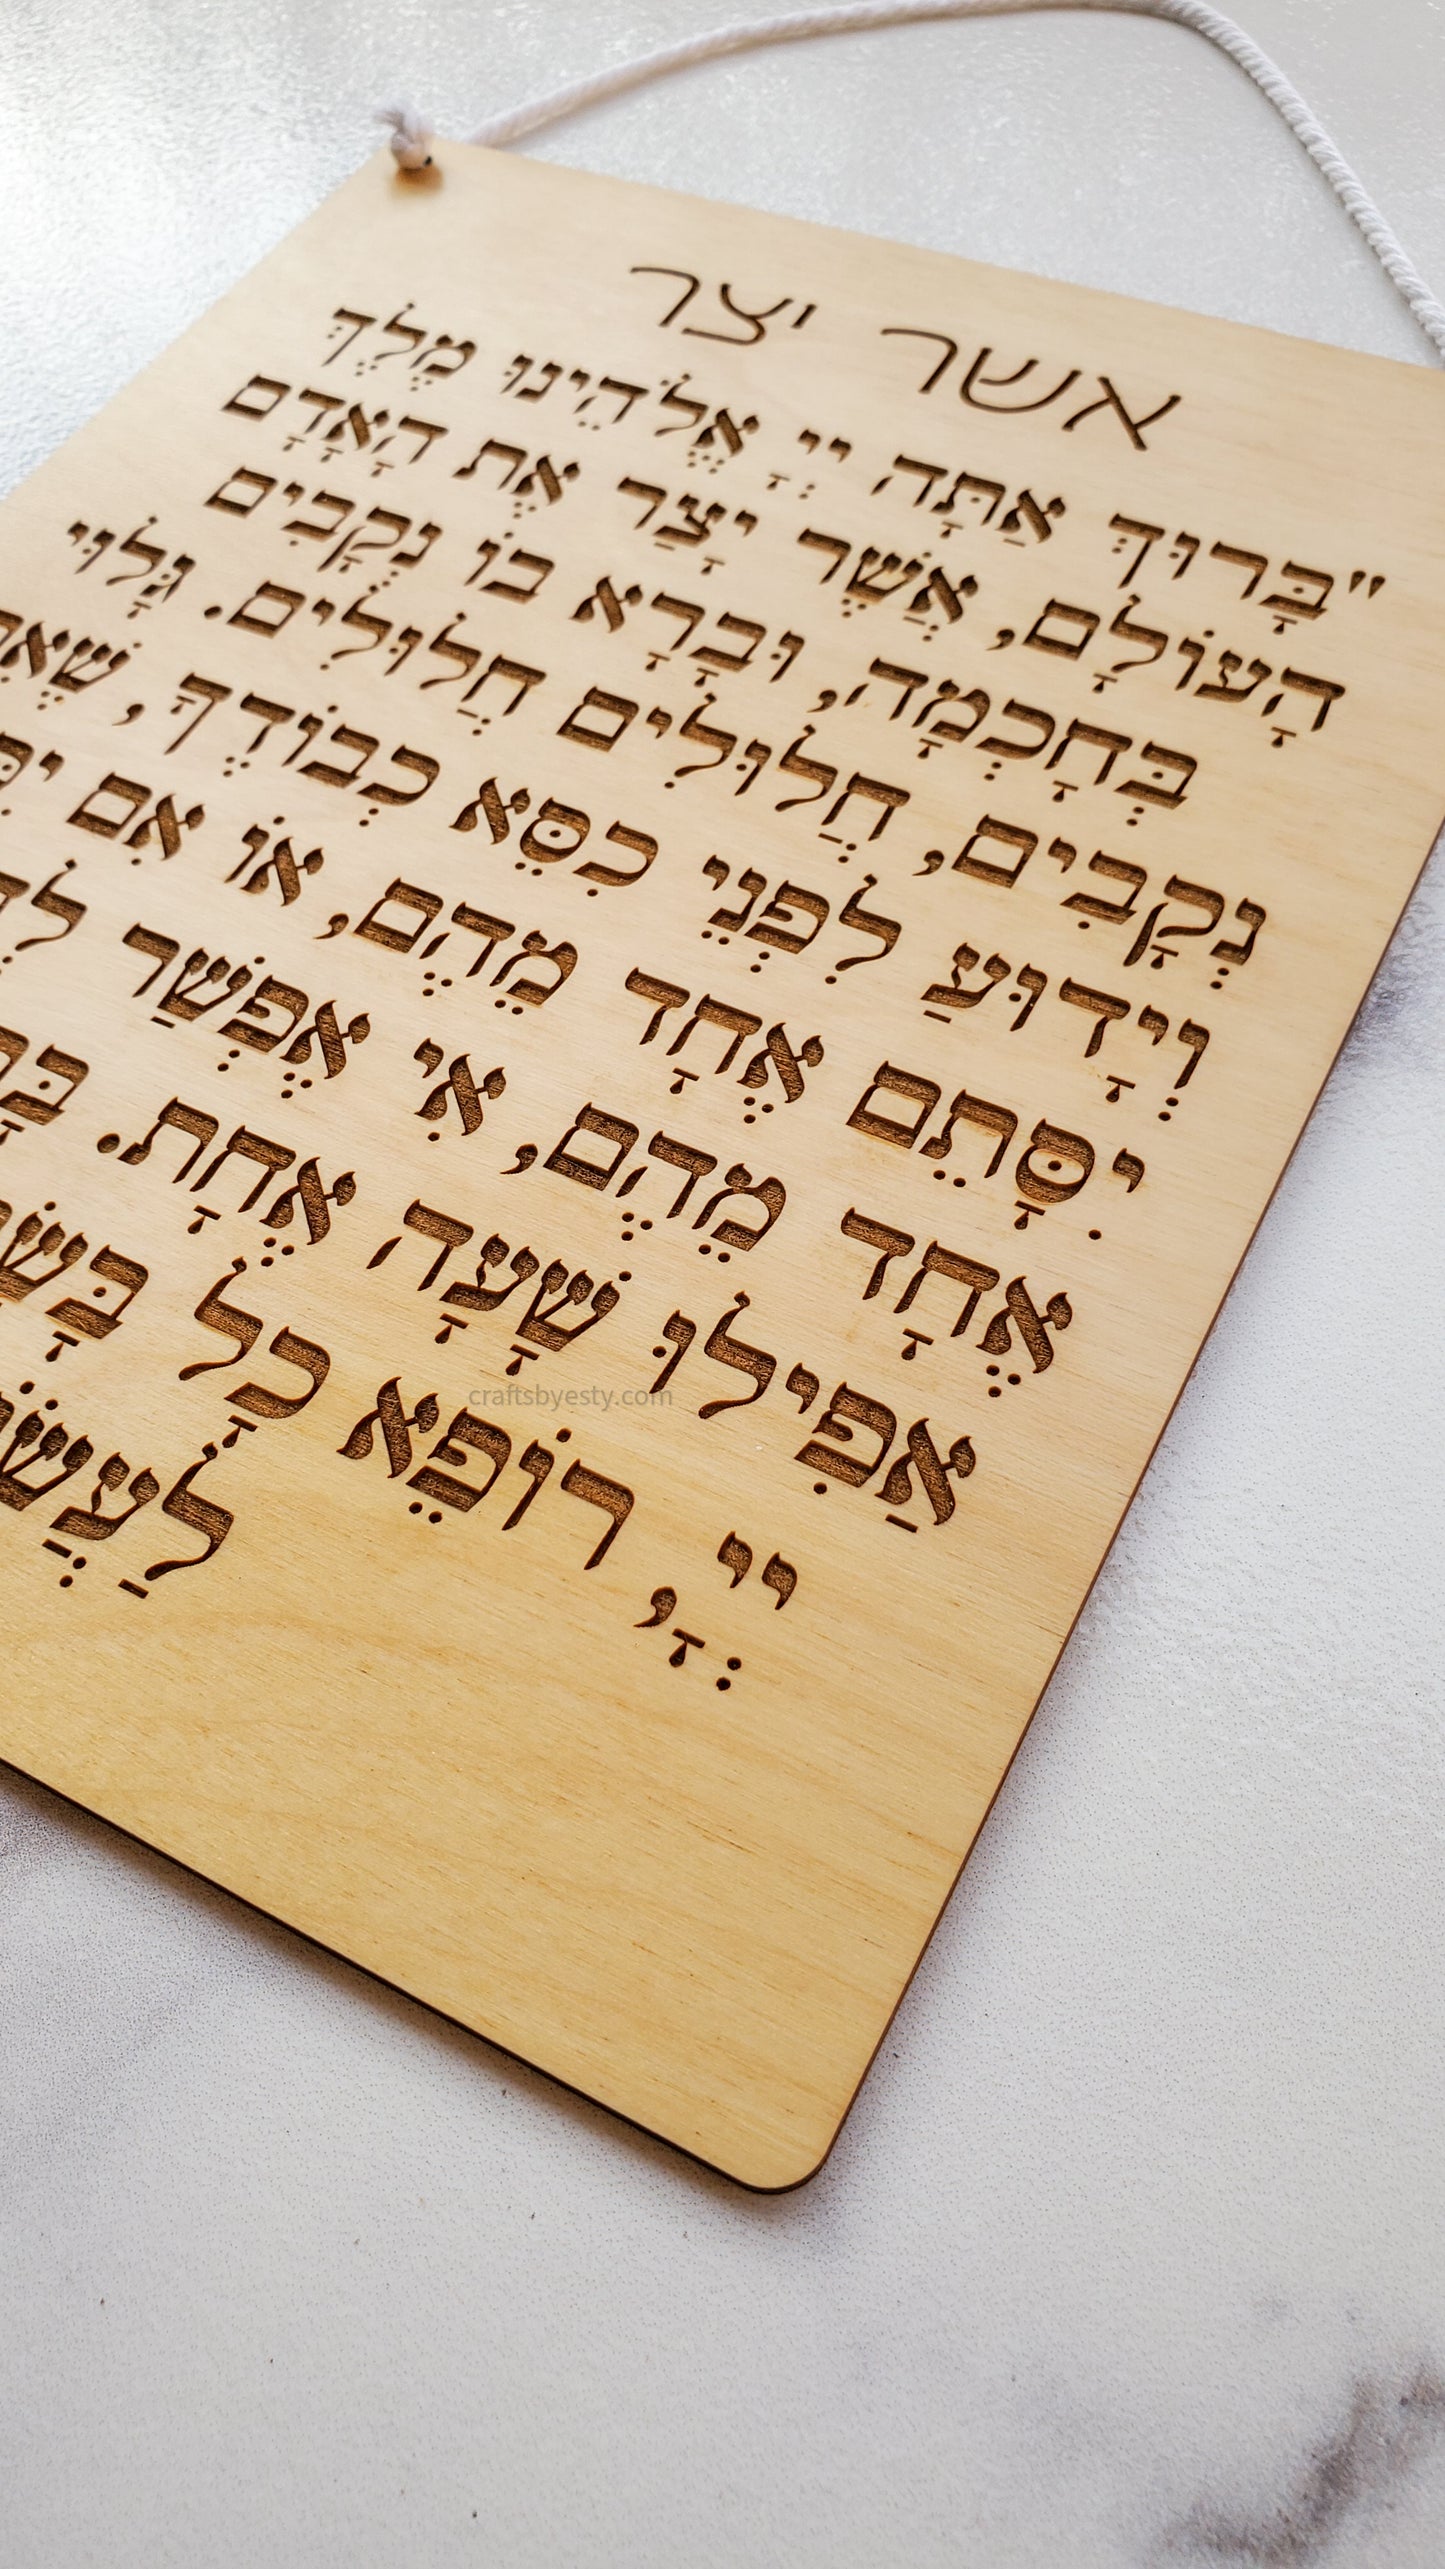 אשר יצר
"בָּרוּךְ אַתָּה יְיָ אֱלֹהֵינוּ מֶלֶךְ
הָעוֹלָם, אֲשֶׁר יָצַר אֶת הָאָדָם
בְּחָכְמָה, וּבָרָא בוֹ נְקָבִים
נְקָבִים, חֲלוּלִים חֲלוּלִים. גָּלוּי
וְיָדוּעַ לִפְנֵי כִסֵּא כְבוֹדֶךָ,
יִסָּתֵם אֶחָד מֵהֶם, אוֹ אִם
אֶחָד מֵהֶם, אִי אֶפְשַׁר
אַפִּילוּ שָׁעָה אֶחָת.
יְיָ, רוֹפֵא כָל
craftsbyesty.com